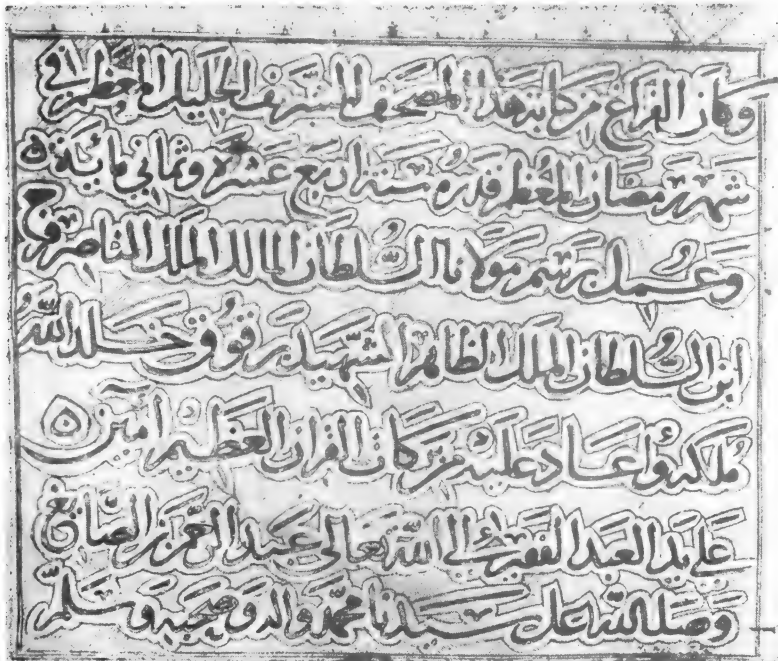 وكان الفراغ من كتابة هذا المصحف الشريف الجليل المعظم في
شهر رمضان المعظم قدره سنة اربع عشرة وثماني مائة
وعمل برسم مولانا السلطان المالك الملك الناصر فرج
ابن السلطان الملك الظاهر الشهيد برقوق خلد الله
ملكه واعاد عليه من بركات القران العظيم امين
على يد العبد الفقير الى الله تعالى عبد الرحمن الصايغ
وصلى الله على سيدنا محمد واله وصحبه وسلم